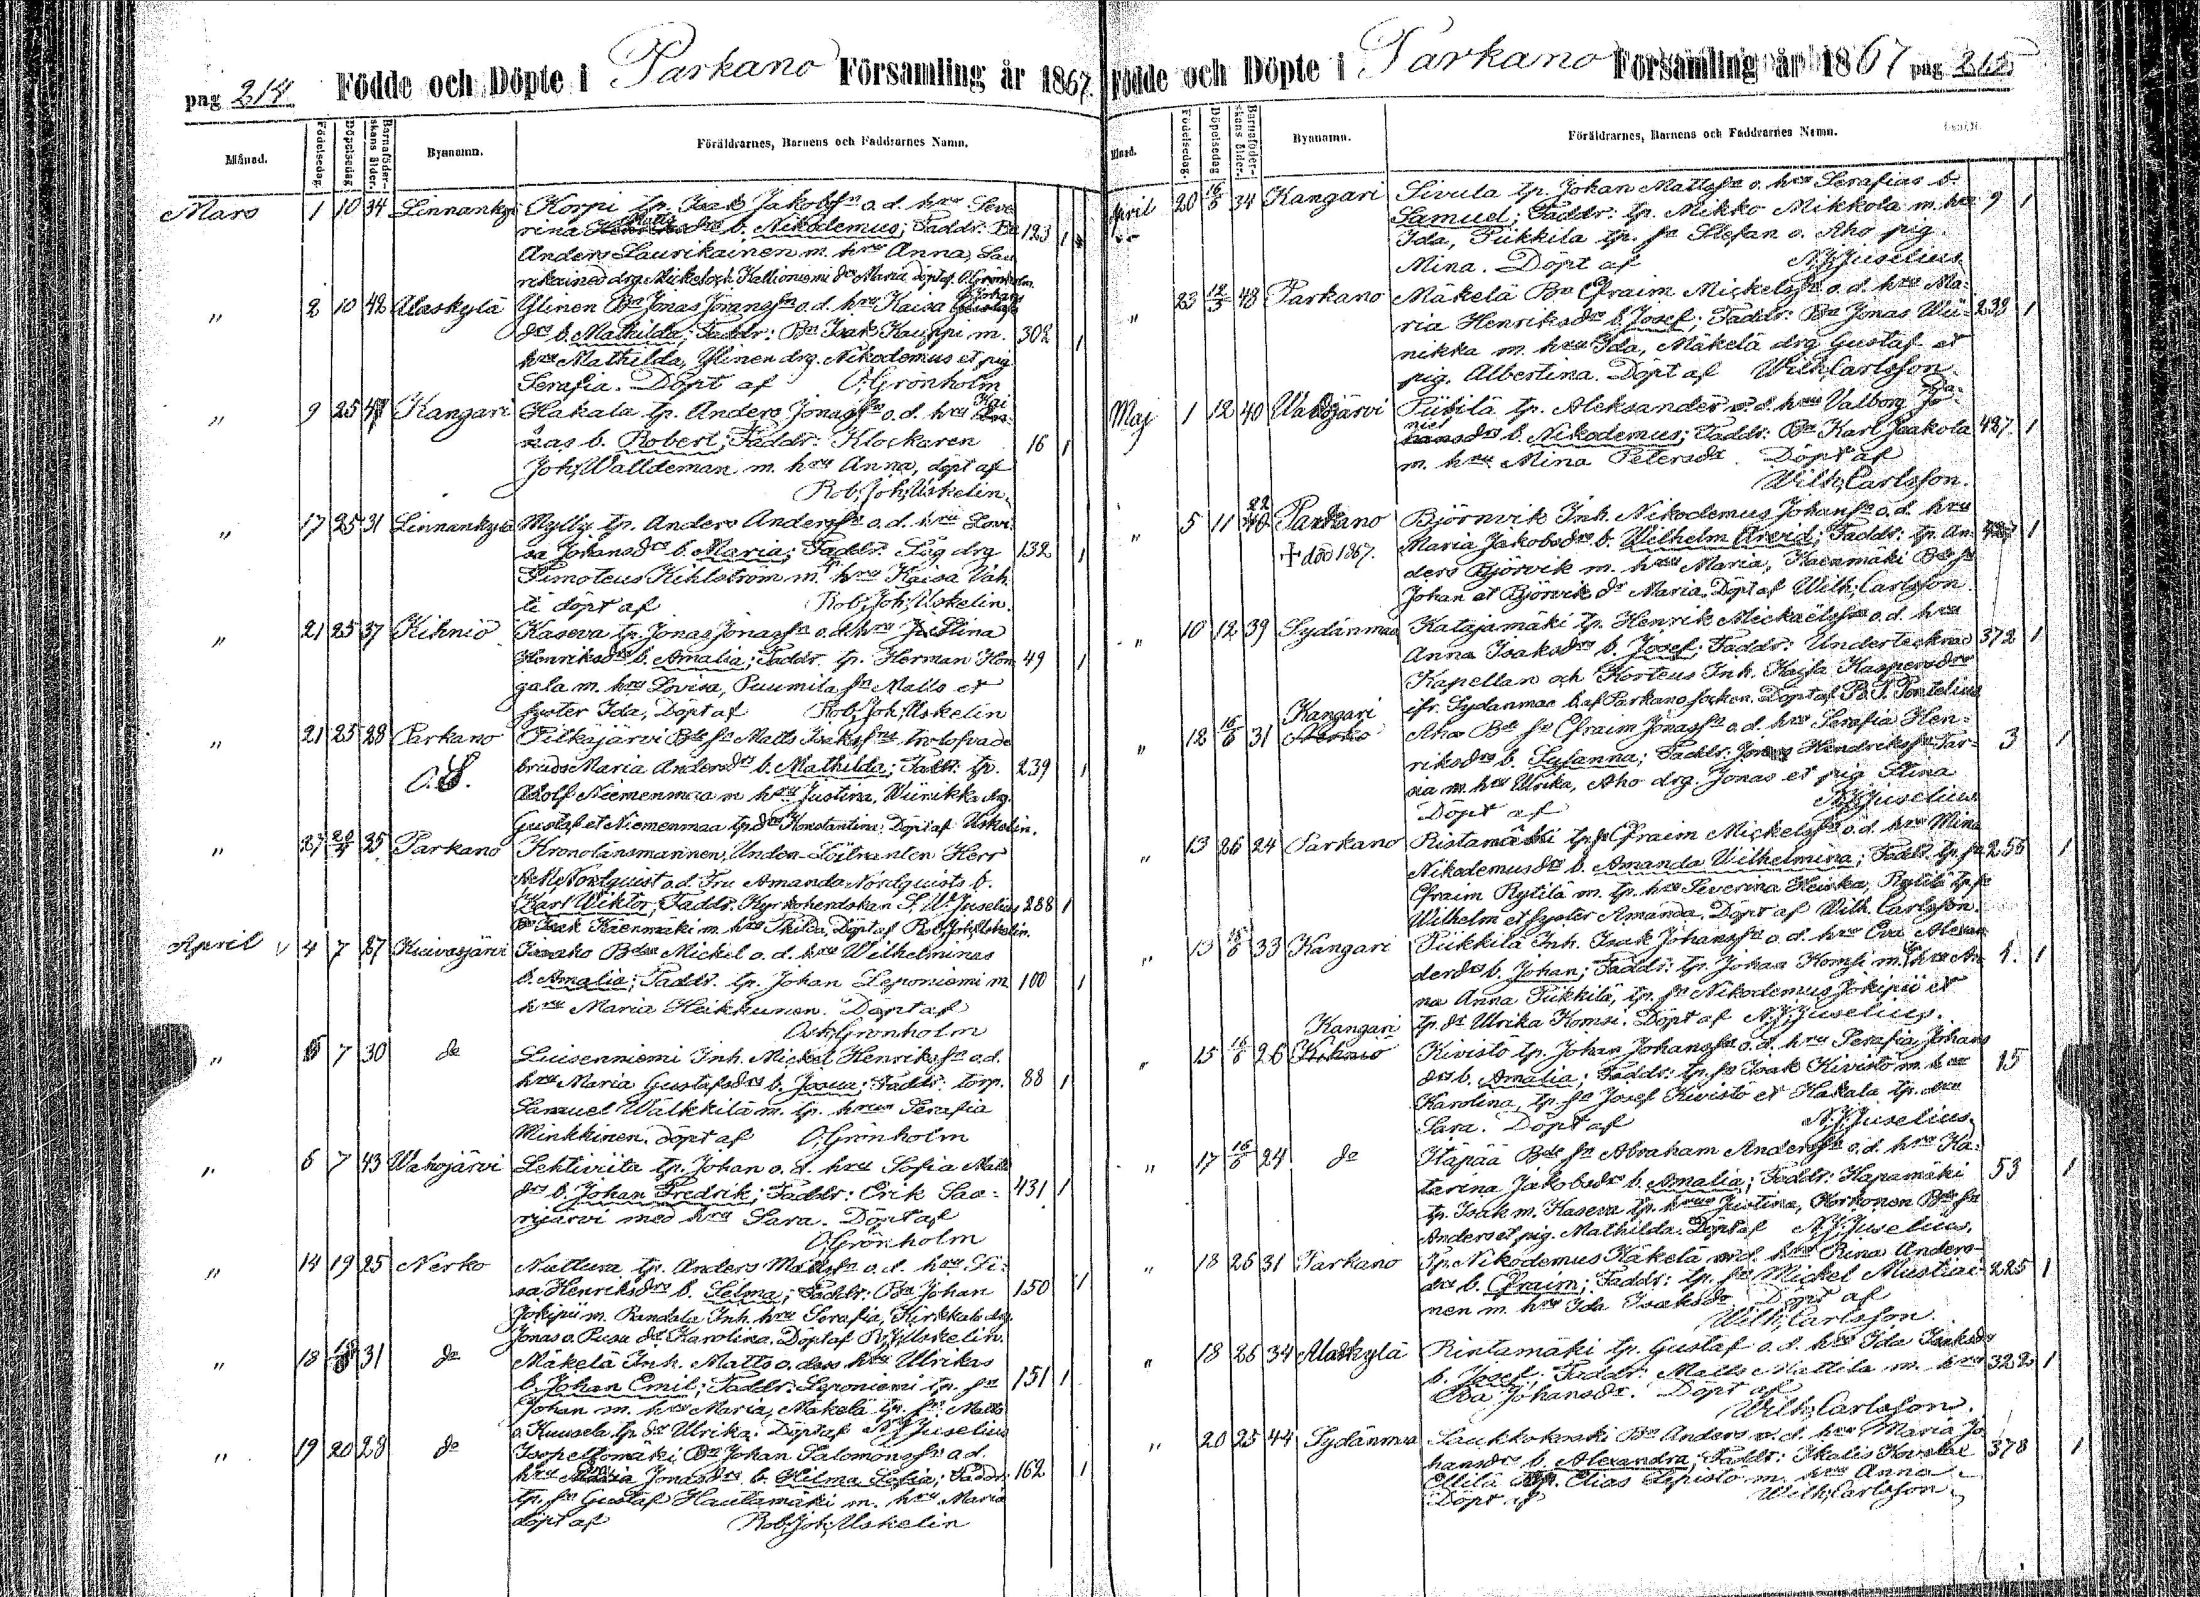 pag 214 Födde och Döpte i Parkano Församling år 1867.
Månad. Födelsedag. Döpelsedag Barnaföderskans ålder. Bynamn. Föräldrarnes, Barnens och Faddrarnes Namn.
Mars 1 10 34 Linnankyl Korpi tp. Isak Jakobssn o. d. hru Seve
rina Matts drs b. Nikodemus; Faddr: Bn 123 1
Anders Laurikainen m. hru Anna, Lau
rikainen drg. Mickel och Kallioniemi dr Maria döpt af O. Grönholm.
" 2 10 42 Alaskylä Ylinen Bn Jonas Jöranssn o. d. hru Kaisa Johans
drs b. Mathilda; Faddr: Bn Isak Kauppi m. 302 1
hru Mathilda, Ylinen drg. Nikodemus et pig.
Serafia. Döpt af O. Grönholm
" 9 25 Kangari Hakala tp. Anders Jonassn o. d. hru Kai
sas b. Robert; Faddr: Klockaren 16 1
Joh. Walldeman m. hru Anna, döpt af
Rob. Joh. Uskelin.
" 17 25 31 Linnankylä Mylly tp. Anders Anderssn o. d. hru Lovi
sa Johansdrs b. Maria; Faddr: Såg drg 132 1
Timoteus Kihlström m. hru Kaisa Vah
ti döpt af Rob. Joh. Uskelin.
" 21 25 37 Kihniö Kaseva tp. Jonas Jonassn o. d. hru Stina
Henriksdrs b. Amalia; Faddr. tp. Herman Hon 49 1
gala m. hru Lovisa, Puumila sn Matts et
syster Ida, Döpt af Rob. Joh. Uskelin
" 21 25 28 Parkano Pitkäjärvi Bde sn Matts Isakssns trolofvade
O.S. bruds Maria Andersdrs b. Mathilda; Faddr: tp. 239 1
Adolf Niemenmaa m hru Justina, Wiinikka drg.
Gustaf et Niemenmaa tp. dr Konstantina. Döpt af Uskelin.
" 27 25 Parkano Kronolänsmannen, Under-Löitnanten Herr
Nordquist o. d. Fru Amanda Nordquists b.
Karl Wiktor; Faddr. Kyrkoherdskan S. W. Juselius 288 1
Isak Kaenmäki m. hru Thilda, Döpt af Rob. Joh. Uskelin.
April 4 7 27 Kuivasjärvi Bdes Mickel o. d. hru Wilhelminas
b. Amalia; Faddr. tp. Johan Leponiemi m 100 1
hru Maria Heikkunen. Döpt af
Osk. Grönholm
" 5 7 30 do Luisenniemi Inh. Mickel Henrikssn o. d.
hru Maria Gustafsdrs b. Josua; Faddr: torp. 88 1
Samuel Wälkkilä m. tp. hrun Serafia
Minkkinen. döpt af O. Grönholm
" 6 7 43 Wahojärvi Lehtiviita tp. Johan o. d. hru Sofia Matts
drs b. Johan Fredrik; Faddr: Erik Saa- 431 1
rijärvi med hru Sara. Döpt af
O. Grönholm
" 14 19 25 Nerko Nattura tp. Anders Mattssn o. d. hru Li-
sa Henriksdrs b. Selma; Faddr: Bn Johan 150 1
Jokipii m. Randala Inh. hru Serafia, Kirkkala drg.
Jonas o. dr Karolina. Döpt af R. J. Uskelin.
" 18 31 do Mäkelä Inh. Matts o. dess hru Ulrikas
b. Johan Emil; Faddr: Leponiemi tp. sn 151 1
Johan m. hru Maria, Mäkelä tp. sn Matts
o. Kuusela tp. dr Ulrika. Döpt af N. J. Juselius
" 19 20 28 do Isopeltomäki Bn Johan Salomonssn o. d.
hru Jonasdrs b. Hilma Sofia; Faddr: 162 1
tp. sn Gustaf Hautamäki m. hru Maria
döpt af Rob. Joh. Uskelin
Födde och Döpte i Parkano Församling år 1867 pag 215
Månad. Födelsedag. Döpelsedag Barnaföderskans ålder. Bynamn. Föräldrarnes, Barnens och Faddrarnes Namn.
April 20 16/6 34 Kangari Sivula tp. Johan Mattssn o. hru Serafias b.
Samuel; Faddr: tp. Mikko Mikkola m. hru 9 1
Ida, Piikkilä tp. sn Stefan o. Aho pig.
Mina. Döpt af N. J. Juselius
" 23 12/5 48 Parkano Mäkelä Bn Efraim Mickelssn o. d. hru Ma-
ria Henriksdrs b. Josef; Faddr: Bn Jonas Wii- 239 1
nikka m. hru Ida, Mäkelä drg Gustaf et
pig. Albertina. Döpt af Wilh. Carlsson.
Maj 1 12 40 Wahojärvi tp. Aleksander o. d. hru Valborg
drs b. Nikodemus; Faddr: Bn Karl Jaakola 487 1
m. hru Mina Petersdr. Döpt af
Wilh. Carlsson.
" 5 11 22 Parkano Björnvik Inh. Nikodemus Johanssn o. d. hru
† död 1867. Maria Jakobsdrs b. Wilhelm Arvid; Faddr: tp. An- 1
ders Björvik m. hru Maria, Kaenmäki Bde sn
Johan et Björvik dr Maria. Döpt af Wilh. Carlsson
" 10 12 39 Sydänmaa Katajamäki tp. Henrik Mickaëlssn o. d. hru
Anna Isaksdrs b. Josef; Faddr: Undertecknad 372 1
Kapellan och Korteus Inh. Kajsa Kaspersdr
ifr. Sydänmaa b. af Parkano socken. Döpt af
" 12 16/6 31 Kangari Aho Bde sn Efraim Jonassn o. d. hru Serafia Hen-
riksdrs b. Susanna; Faddr: Jonas Hendrikssn Tar- 3 1
sia m. hru Ulrika, Aho drg. Jonas et pig Stina
Döpt af N. J. Juselius
" 13 26 24 Parkano Ristamäki tp. sn Efraim Mickelssn o. d. hru Mina
Nikodemusdrs b. Amanda Wilhelmina; Faddr. tp. sn 255 1
Efraim Rytilä m. tp. hru Severina Heiska, Rytilä tp. sn
Wilhelm et syster Amanda. Döpt af Wilh. Carlsson.
" 13 33 Kangari Piikkilä Inh. Isak Johanssn o. d. hru Eva Alexan
derdrs b. Johan; Faddr: tp. Johan Komsi m. hru An 1. 1
na Anna Piikkilä, tp. sn Nikodemus Jokipii et
tp. dr Ulrika Komsi. Döpt af N. J. Juselius.
" 15 16/6 26 Kangari Kivistö tp. Johan Johanssn o. d. hru Serafia Johans
drs b. Amalia; Faddr: tp. sn Isak Kivistö m. hru 15
Karolina, tp. sn Josef Kivistö et Hakala tp. dr
Sara. Döpt af N. J. Juselius.
" 17 16/6 24 do Itäpää Bde sn Abraham Anderssn o. d. hru Ka-
tarina Jakobsdrs b. Amalia; Faddr: Hapamäki 53 1
tp. Isak m. Kaseva tp. hrun Justina, Korhonen Bde sn
Anders et pig. Mathilda. Döpt af N. J. Juselius.
" 18 26 31 Parkano Tp. Nikodemus Käkelä o. d. hru Rina Anders-
drs b. Efraim; Faddr: tp. sn Mickel Mustiai- 225 1
nen m. hru Ida Isaksdr Döpt af
Wilh. Carlsson.
" 18 26 34 Alaskylä Rintamäki tp. Gustaf o. d. hru Ida Isaksdrs
b. Josef; Faddr: Matts Mattila m. hru 322 1
Eva Johansdr. Döpt af
Wilh. Carlsson.
" 20 25 44 Sydänmaa Saukkokoski Bn Anders o. d. hru Maria Jo
hansdrs b. Alexandra; Faddr: Ikalis 378 1
tp. Elias Lepistö m. hru Anna.
Döpt af Wilh. Carlsson.